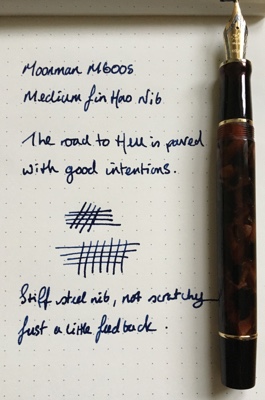 Moonman M600s
Medium fin Hao Nib
The road to Hell is paved
with good intentions.
Stiff steel nib, not scratchy
Just a little feedback.